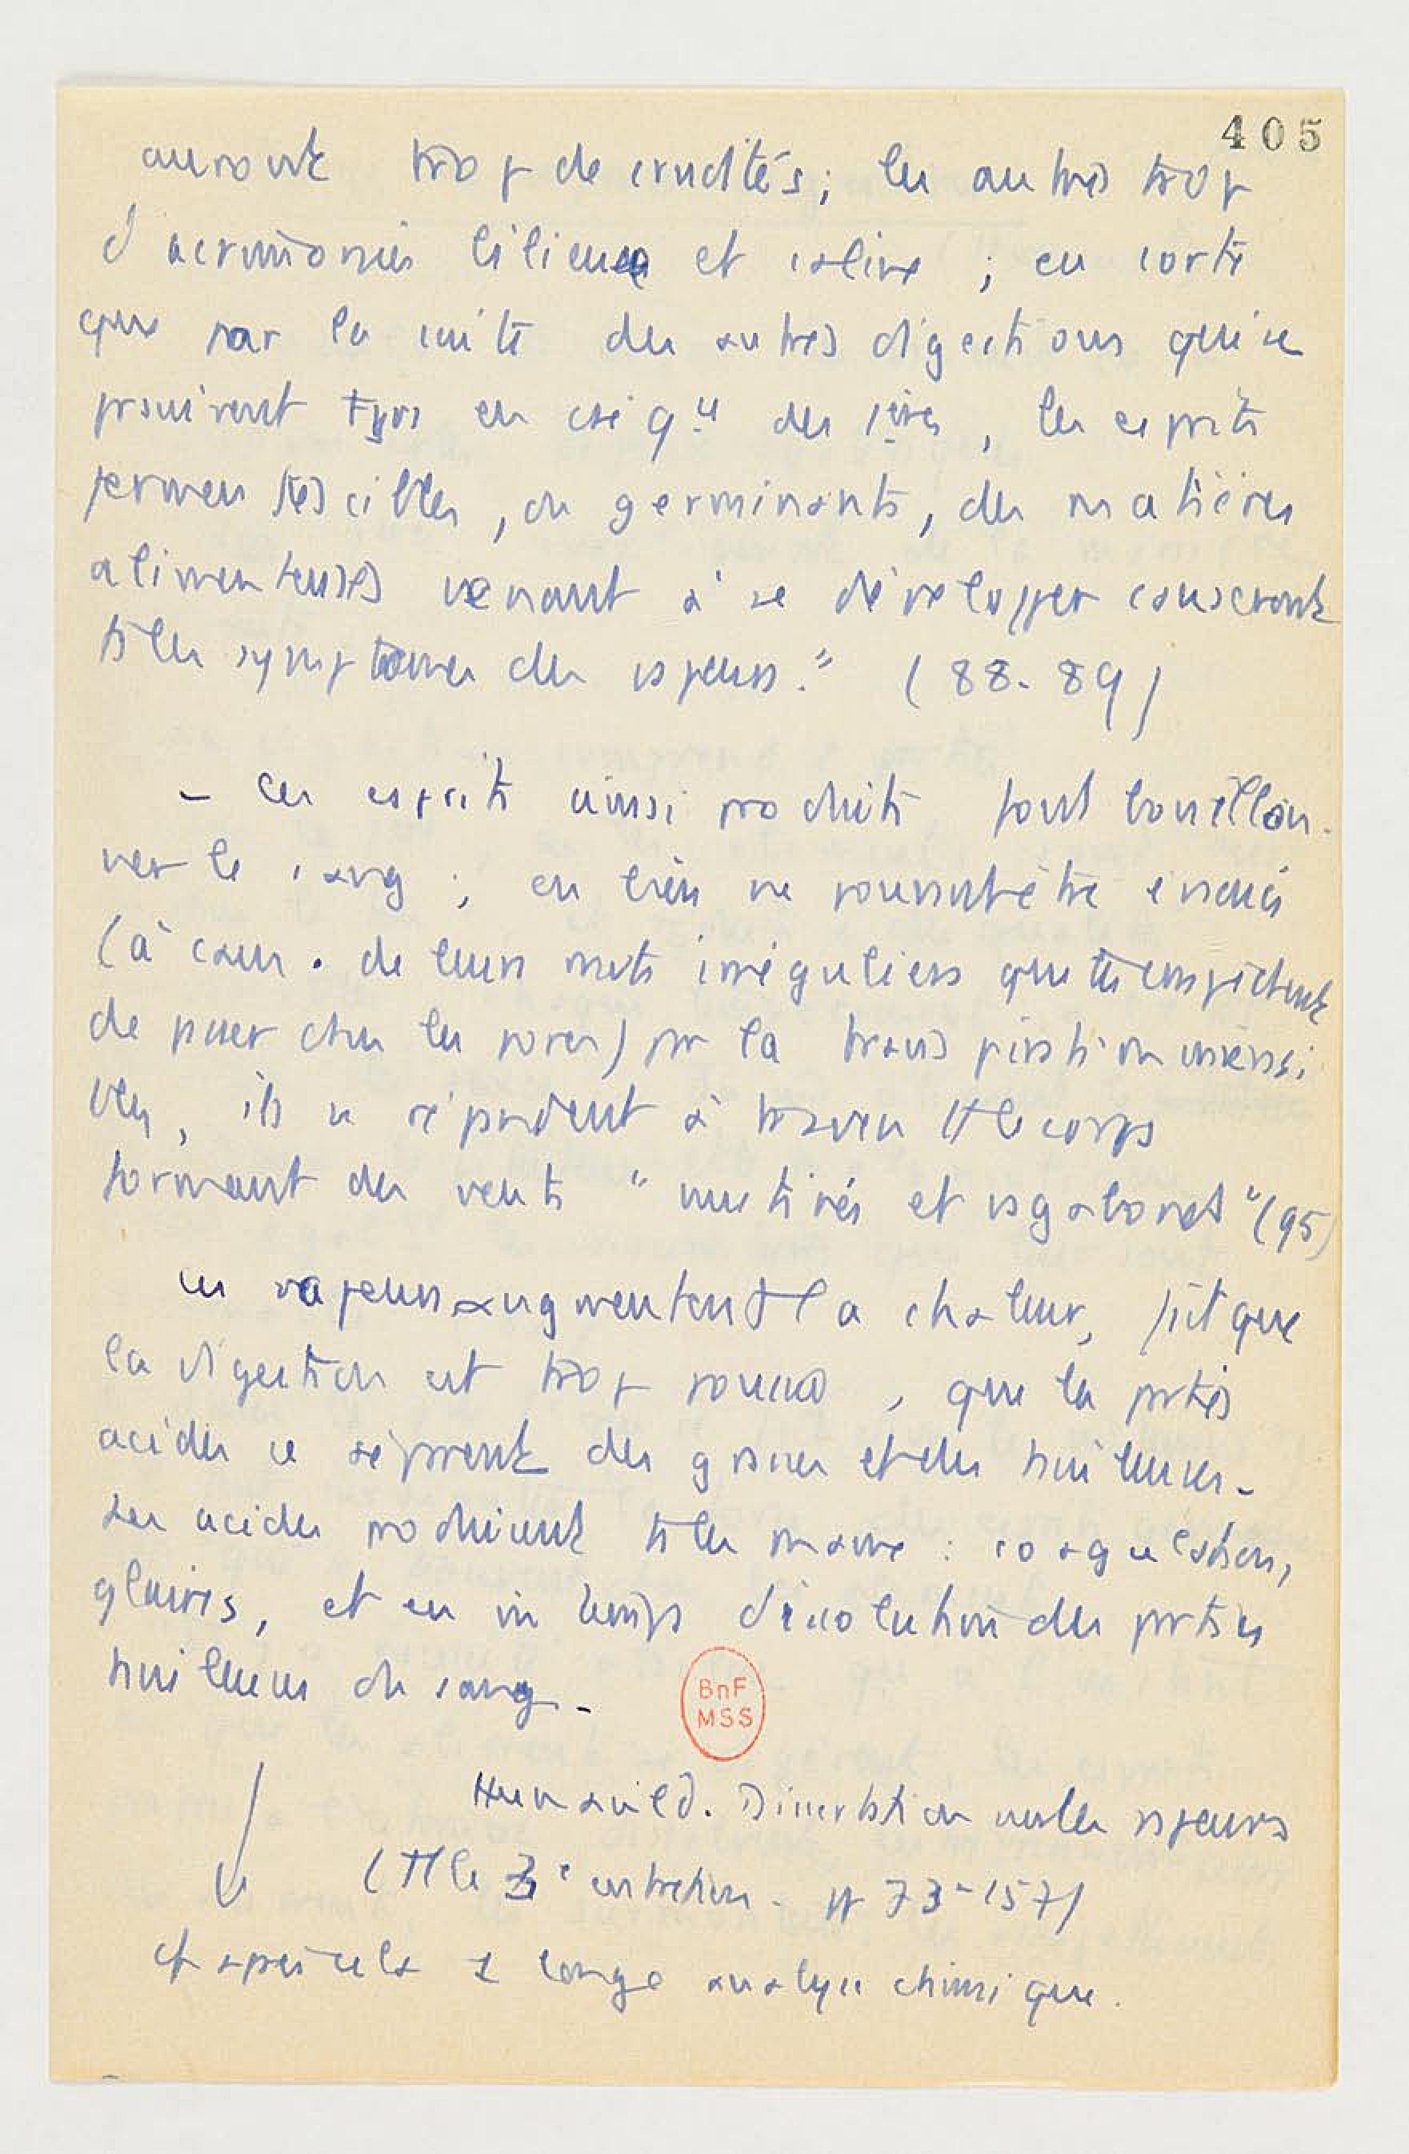 405
auront trop de crudités ; les autres trop
d'acrimonies bilieuses et saline ; en sorte
que par la suite des autres digestions qui se
tjrs en csé q. des 1ères, les esprits
fermentescibles, ou germinants, des matières
alimenteuses venant à se développer causeront
ts les symptomes des vapeurs." (88-89)
- Ces esprits ainsi produits font bouillon-
ner le sang ; ou bien ne pouvant être évacués
(à caus. de leurs mvts irréguliers qui les empêchent
de passer chez les pores) par la transpiration insensi
bles, ils se répandent à travers tt le corps
formant des vents " mutinés et vagabonds " (95)
ces vapeurs augmentent la chaleur, soit que
la digestion est trop poussée, que les parties
acides se séparent des grasses et des huileuses -
Les acides produisent ts les maux : coagulation,
glaires, et en m temps dissolution des parties
huileuses du sang -
BnF
MSS
Hunauld. Dissertation sur les vapeurs
(Tt le 3e entretien - pp 73-157)
et après cela 1 longe analyse chimique.